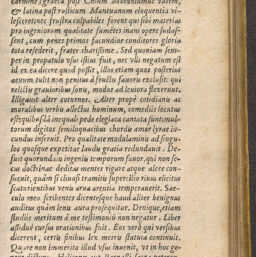 carmine; græca post Chium Mœonidumue vatem,
& latina post rusticum Mantuanum eloquentia vi-
lesceret: nec frustra culpabiles forent qui sibi materias
pro ingeniorum qualitate sumpserint mani opere sudas-
sent, cum penes primos facundiæ conditores gloria
tota resederit, frater charissime. Sed quoniam sem-
per in propatulo vsus istius fuit, nec vlli negatum est
id ex ea dicere quod posset, illos etiam quos posterius
æuum tubit non penitus à fructu fauoris exclusit: qui
relictis grauioribus sonu, modos ad leuiora flexerunt.
Illigauit alter coturnos. Alter propè cotidiana ac
moralibus verbis allectus hominum, comœdis locutus
est, quibusdā inæquali pede elegiaca cantata sunt: mul-
torum digitos semiloquacibus chordis amor lyræ iu-
cundus inseruit. Pro qualitate modulaminis ad singu-
los quosque expetitæ laudis gratia redundauit. De-
fuit quorundam ingeniis temporum fauor, qui non se-
cus doctrinæ deditas mentes rigare atque alere con-
sueuit, quàm si cliuosi tramitis supercilio riuus elicitus
scaturientibus venis arua arentia temperauerit. Sæ-
culo meo scribentes dicentesque haud aliter benignus
auditus quàm lenis aura prosequitur. Denique, etiam
studiis meritum à me testimonij non negatur. Liber
assiduè cursus orationibus fuit. Eos verò qui versibus
dicerent, certis finibus lex metri statura continuit.
Quare non immerito illud vsu inuenit, vt in hoc ge-